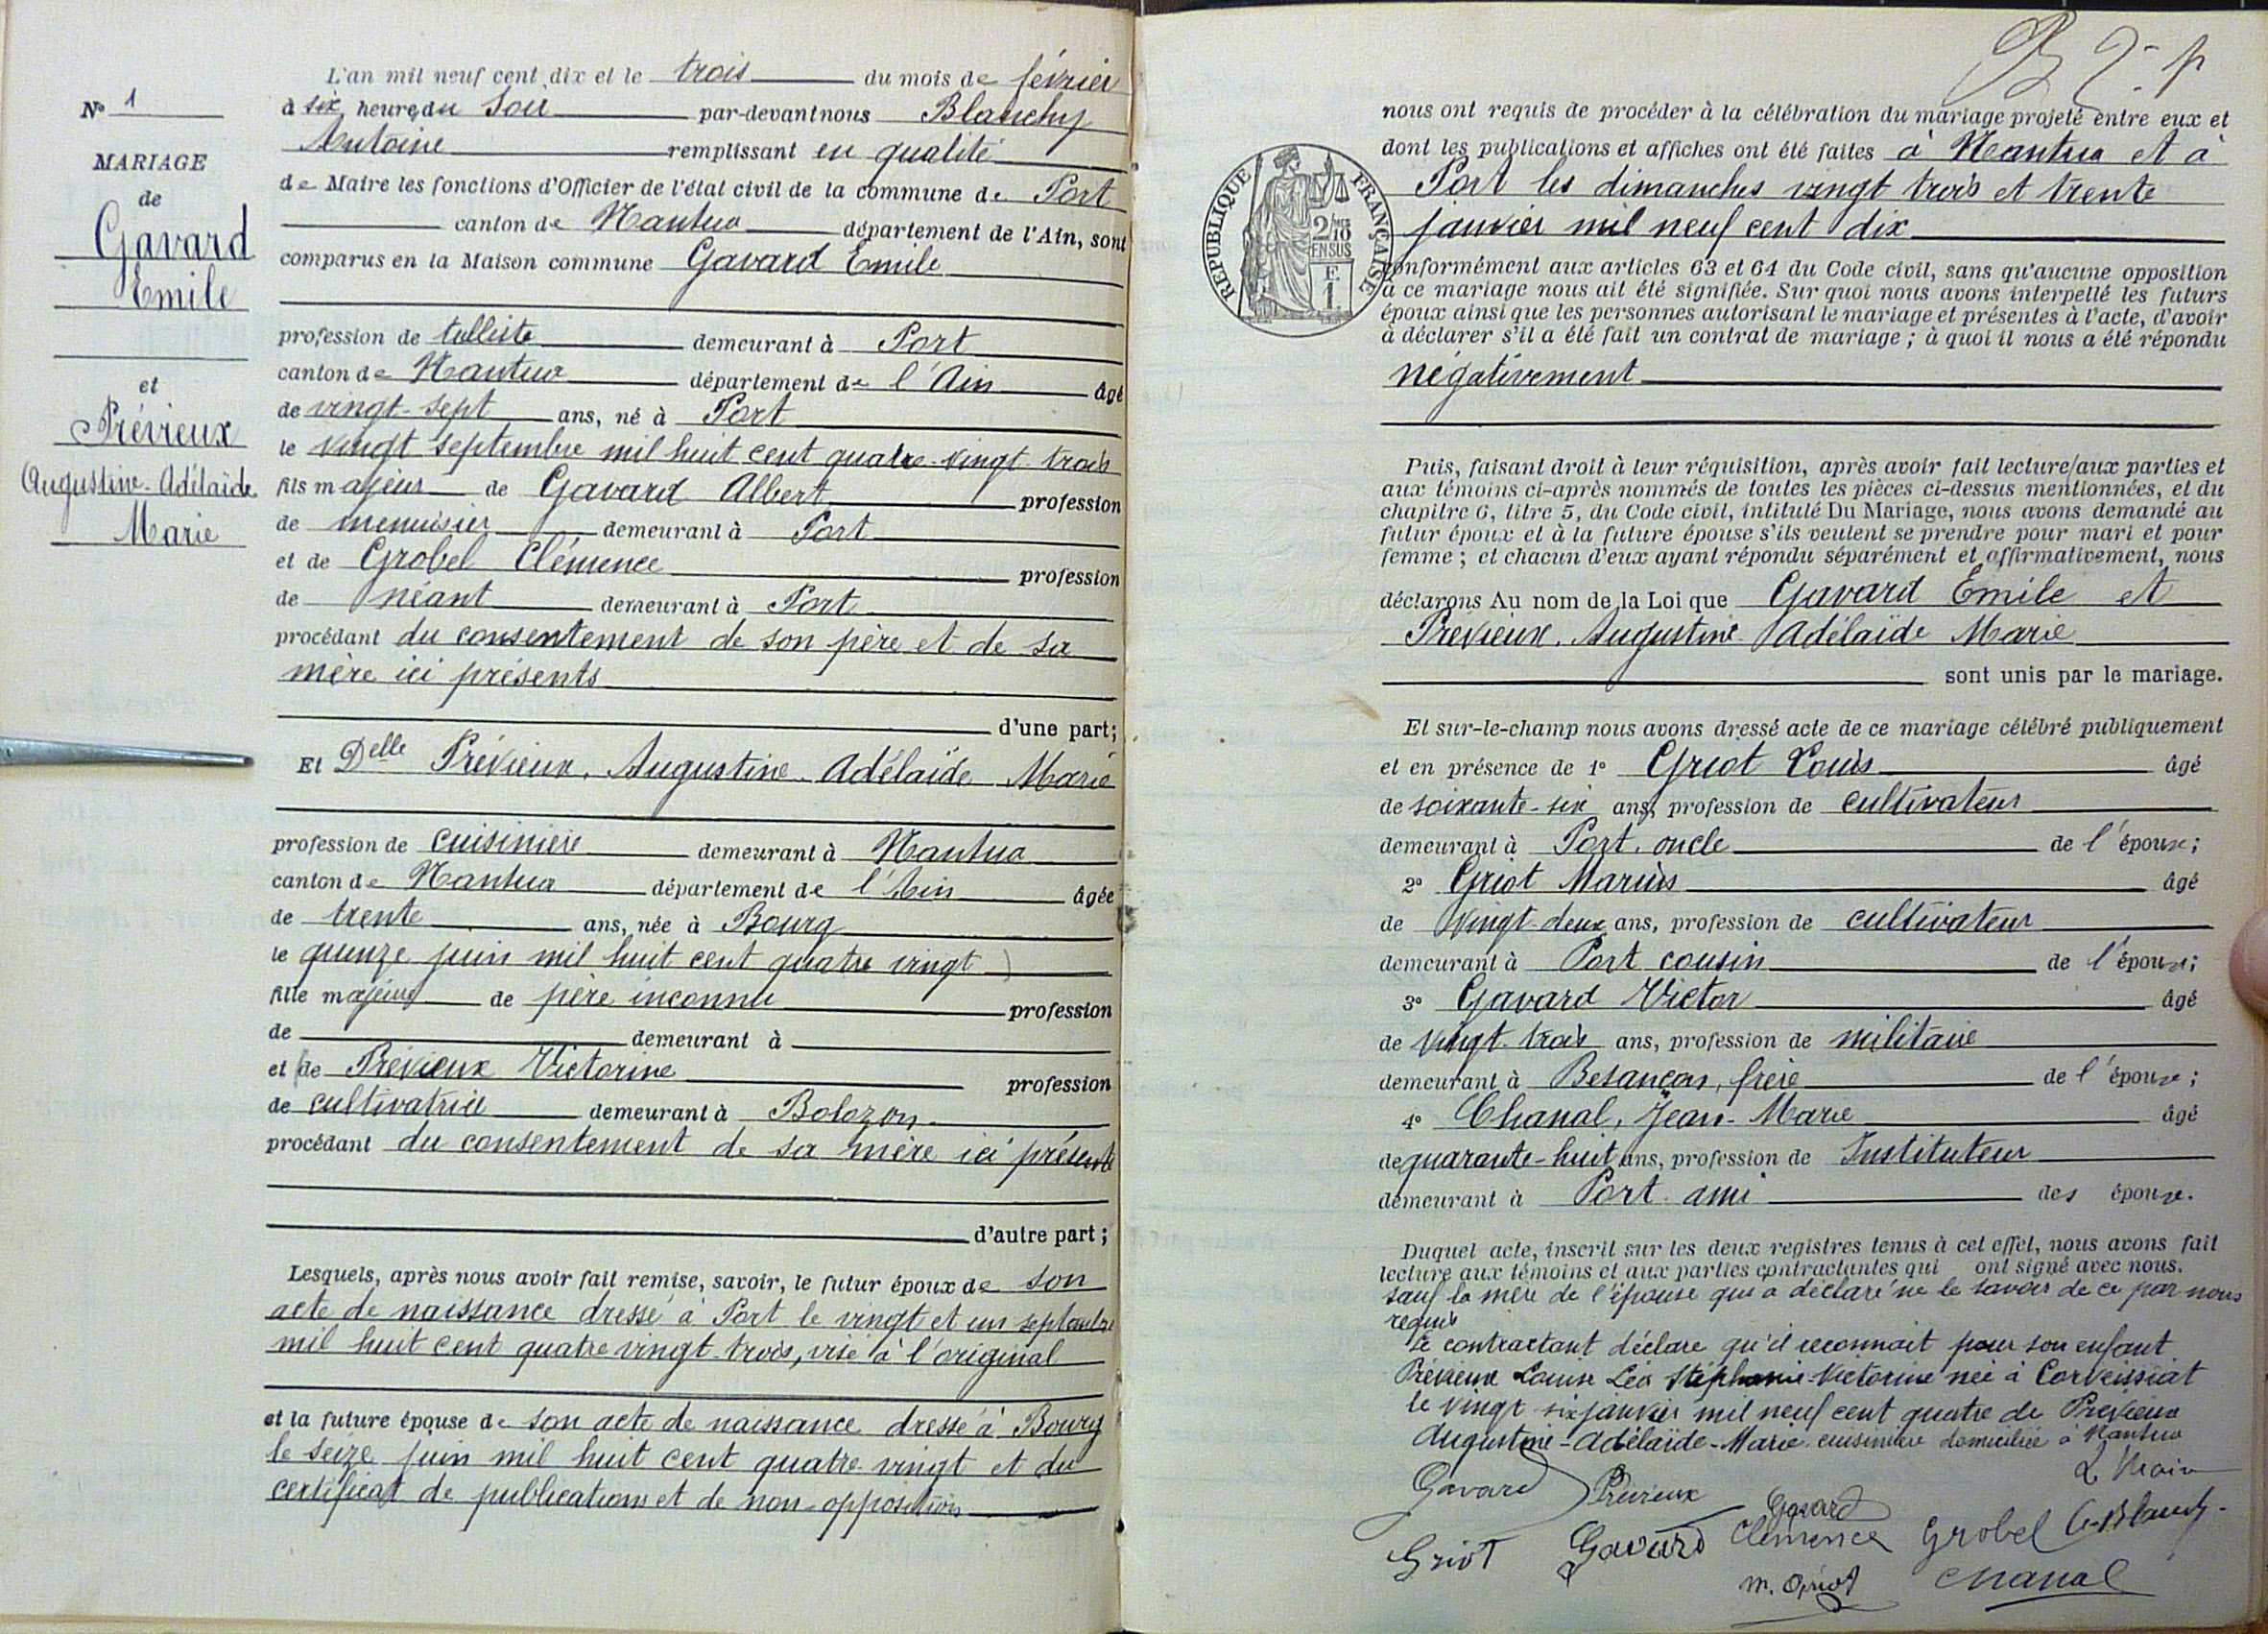 N° 1
MARIAGE
de
Gavard
Emile
et
Prévieux
Augustine-Adélaïde
Marie
L'an mil neuf cent dix et le trois du mois de février
à six heures du soir par-devant nous Blanchy
Antoine remplissant en qualité
de Maire les fonctions d'Officier de l'état civil de la commune de Port
canton de Nantua département de l'Ain, sont
comparus en la Maison commune Gavard Emile
profession de tulliste demeurant à Port
canton de Nantua département de l'Ain âgé
de vingt-sept ans, né à Port
le vingt septembre mil huit cent quatre-vingt-trois
fils majeur de Gavard Albert profession
de menuisier demeurant à Port
et de Grobel Clémence profession
de néant demeurant à Port
procédant du consentement de son père et de sa
mère ici présents
d'une part;
Et Delle Prévieux, Augustine-Adélaïde Marie
profession de cuisinière demeurant à Nantua
canton de Nantua département de l'Ain âgée
de trente ans, née à Bourg
le quinze juin mil huit cent quatre vingt
fille majeure de père inconnu profession
de demeurant à
et de Prévieux Victorine profession
de cultivatrice demeurant à Bolozon
procédant du consentement de sa mère ici présente
d'autre part;
Lesquels, après nous avoir fait remise, savoir, le futur époux de son
acte de naissance dressé à Port le vingt et un septembre
mil huit cent quatre vingt-trois, visé à l'original
et la future épouse de son acte de naissance dressé à Bourg
le seize juin mil huit cent quatre-vingt et du
certificat de publications et de non-opposition
nous ont requis de procéder à la célébration du mariage projeté entre eux et
dont les publications et affiches ont été faites à Nantua et à
Port les dimanches vingt trois et trente
janvier mil neuf cent dix
RÉPUBLIQUE FRANÇAISE
2/10
EN SUS
F.
1
conformément aux articles 63 et 64 du Code civil, sans qu'aucune opposition
à ce mariage nous ait été signifiée. Sur quoi nous avons interpellé les futurs
époux ainsi que les personnes autorisant le mariage et présentes à l'acte, d'avoir
à déclarer s'il a été fait un contrat de mariage; à quoi il nous a été répondu
négativement
Puis, faisant droit à leur réquisition, après avoir fait lecture aux parties et
aux témoins ci-après nommés de toutes les pièces ci-dessus mentionnées, et du
chapitre 6, titre 5, du Code civil, intitulé Du Mariage, nous avons demandé au
futur époux et à la future épouse s'ils veulent se prendre pour mari et pour
femme; et chacun d'eux ayant répondu séparément et affirmativement, nous
déclarons Au nom de la Loi que Gavard Emile et
Prévieux, Augustine-Adélaïde Marie
sont unis par le mariage.
Et sur-le-champ nous avons dressé acte de ce mariage célébré publiquement
et en présence de 1° Griot Louis âgé
de soixante-six ans, profession de cultivateur
demeurant à Port, oncle de l'épouse;
2° Griot Marius âgé
de vingt-deux ans, profession de cultivateur
demeurant à Port cousin de l'épouse;
3° Gavard Victor âgé
de vingt-trois ans, profession de militaire
demeurant à Besançon, frère de l'époux;
4° Chanal, Jean-Marie âgé
de quarante-huit ans, profession de Instituteur
demeurant à Port ami des époux.
Duquel acte, inscrit sur les deux registres tenus à cet effet, nous avons fait
lecture aux témoins et aux parties contractantes qui ont signé avec nous.
sauf la mère de l'épouse qui a déclaré ne le savoir de ce par nous
requis
Le contractant déclare qu'il reconnait pour son enfant
Prévieux Louise Léa Stéphanie Victorine née à Corveissiat
le vingt six janvier mil neuf cent quatre de Prévieux
Augustine-Adélaïde-Marie cuisinière domiciliée à Nantua
Le Maire
Gavard Prévieux Gavard
Griot Gavard Clémence Grobel A. Blanchy
M. Griot Chanal